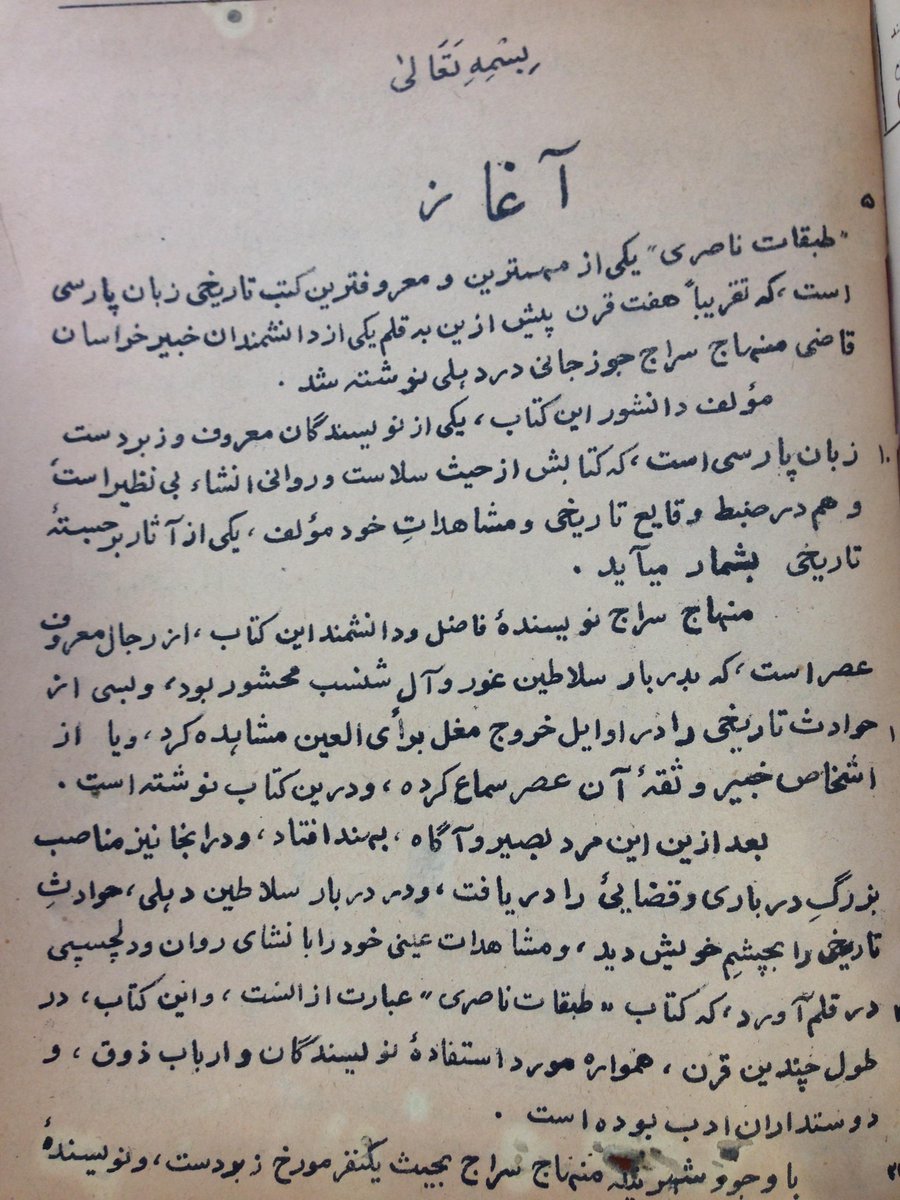 بِسْمِهِ تَعَالیٰ
آغاز
۵
«طبقات ناصری» یکی از مهمترین و معروفترین کتب تاریخی زبان پارسی
است، که تقریباً هفت قرن پیش ازین به قلم یکی از دانشمندان خبیر خراسان
قاضی منهاج سراج جوزجانی در دہلی نوشته شد.
مؤلف دانشور این کتاب، یکی از نویسندگان معروف و زبردست
زبان پارسی است، که کتابش از حیث سلاست و روانی انشاء بی نظیر است ۱۰
و هم در ضبط وقایع تاریخی و مشاهداتِ خود مؤلف، یکی از آثار برجستهٔ
تاریخی بشمار میآید.
منهاج سراج نویسندهٔ فاضل و دانشمند این کتاب، از رجال معروف
عصر است، که بدربار سلاطین غور و آل شنسب محشور بود، و بسی از
حوادث تاریخی را در اوایل خروج مغل برأی العین مشاہده کرد، و یا از
اشخاص خبیر و ثقهٔ آن عصر سماع کرده، و درین کتاب نوشته است.
بعد ازین این مرد بصیر و آگاه، بہند افتاد، و در انجا نیز مناصب
بزرگِ درباری و قضایئ را دریافت، و در دربار سلاطین دہلی، حوادثِ
تاریخی را بچشمِ خویش دید، و مشاهدات عینی خود را با نشای روان و دلچسپی
در قلم آورد، که کتاب «طبقات ناصری» عبارت از انست، و این کتاب، در
طول چندین قرن، همواره مورد استفادهٔ نویسندگان و ارباب ذوق، و
دوستداران ادب بوده است.
با وجود شهرتیکه منهاج سراج بحیث یکنفر مورخ زبردست، و نویسندهٔ